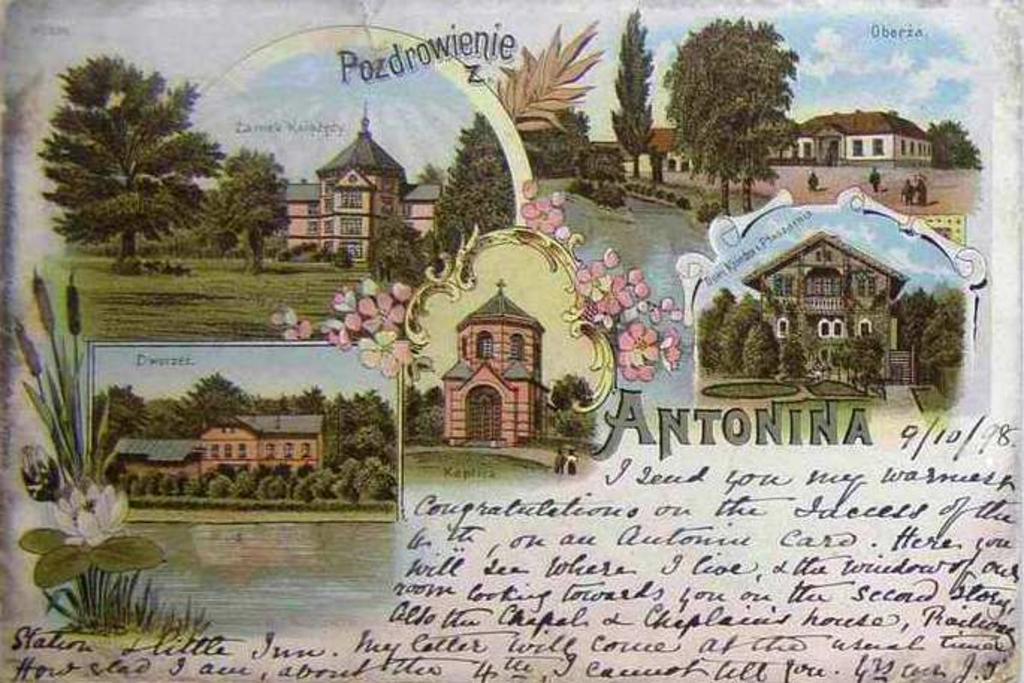 Pozdrowienie
z
Zamek Książęcy
Oberża.
Dworzec.
Kaplica
ANTONINA
9/10/98.
I send you my warmest
Congratulations on the Success of the
on an Antonin Card. Here you
will see where I live, & the window of our
room looking towards you on the second story,
Also the Chapel & Chaplains house, Railway
Station & little Inn. My letter will come at the usual time
How glad I am, about the 4th, I cannot tell you.